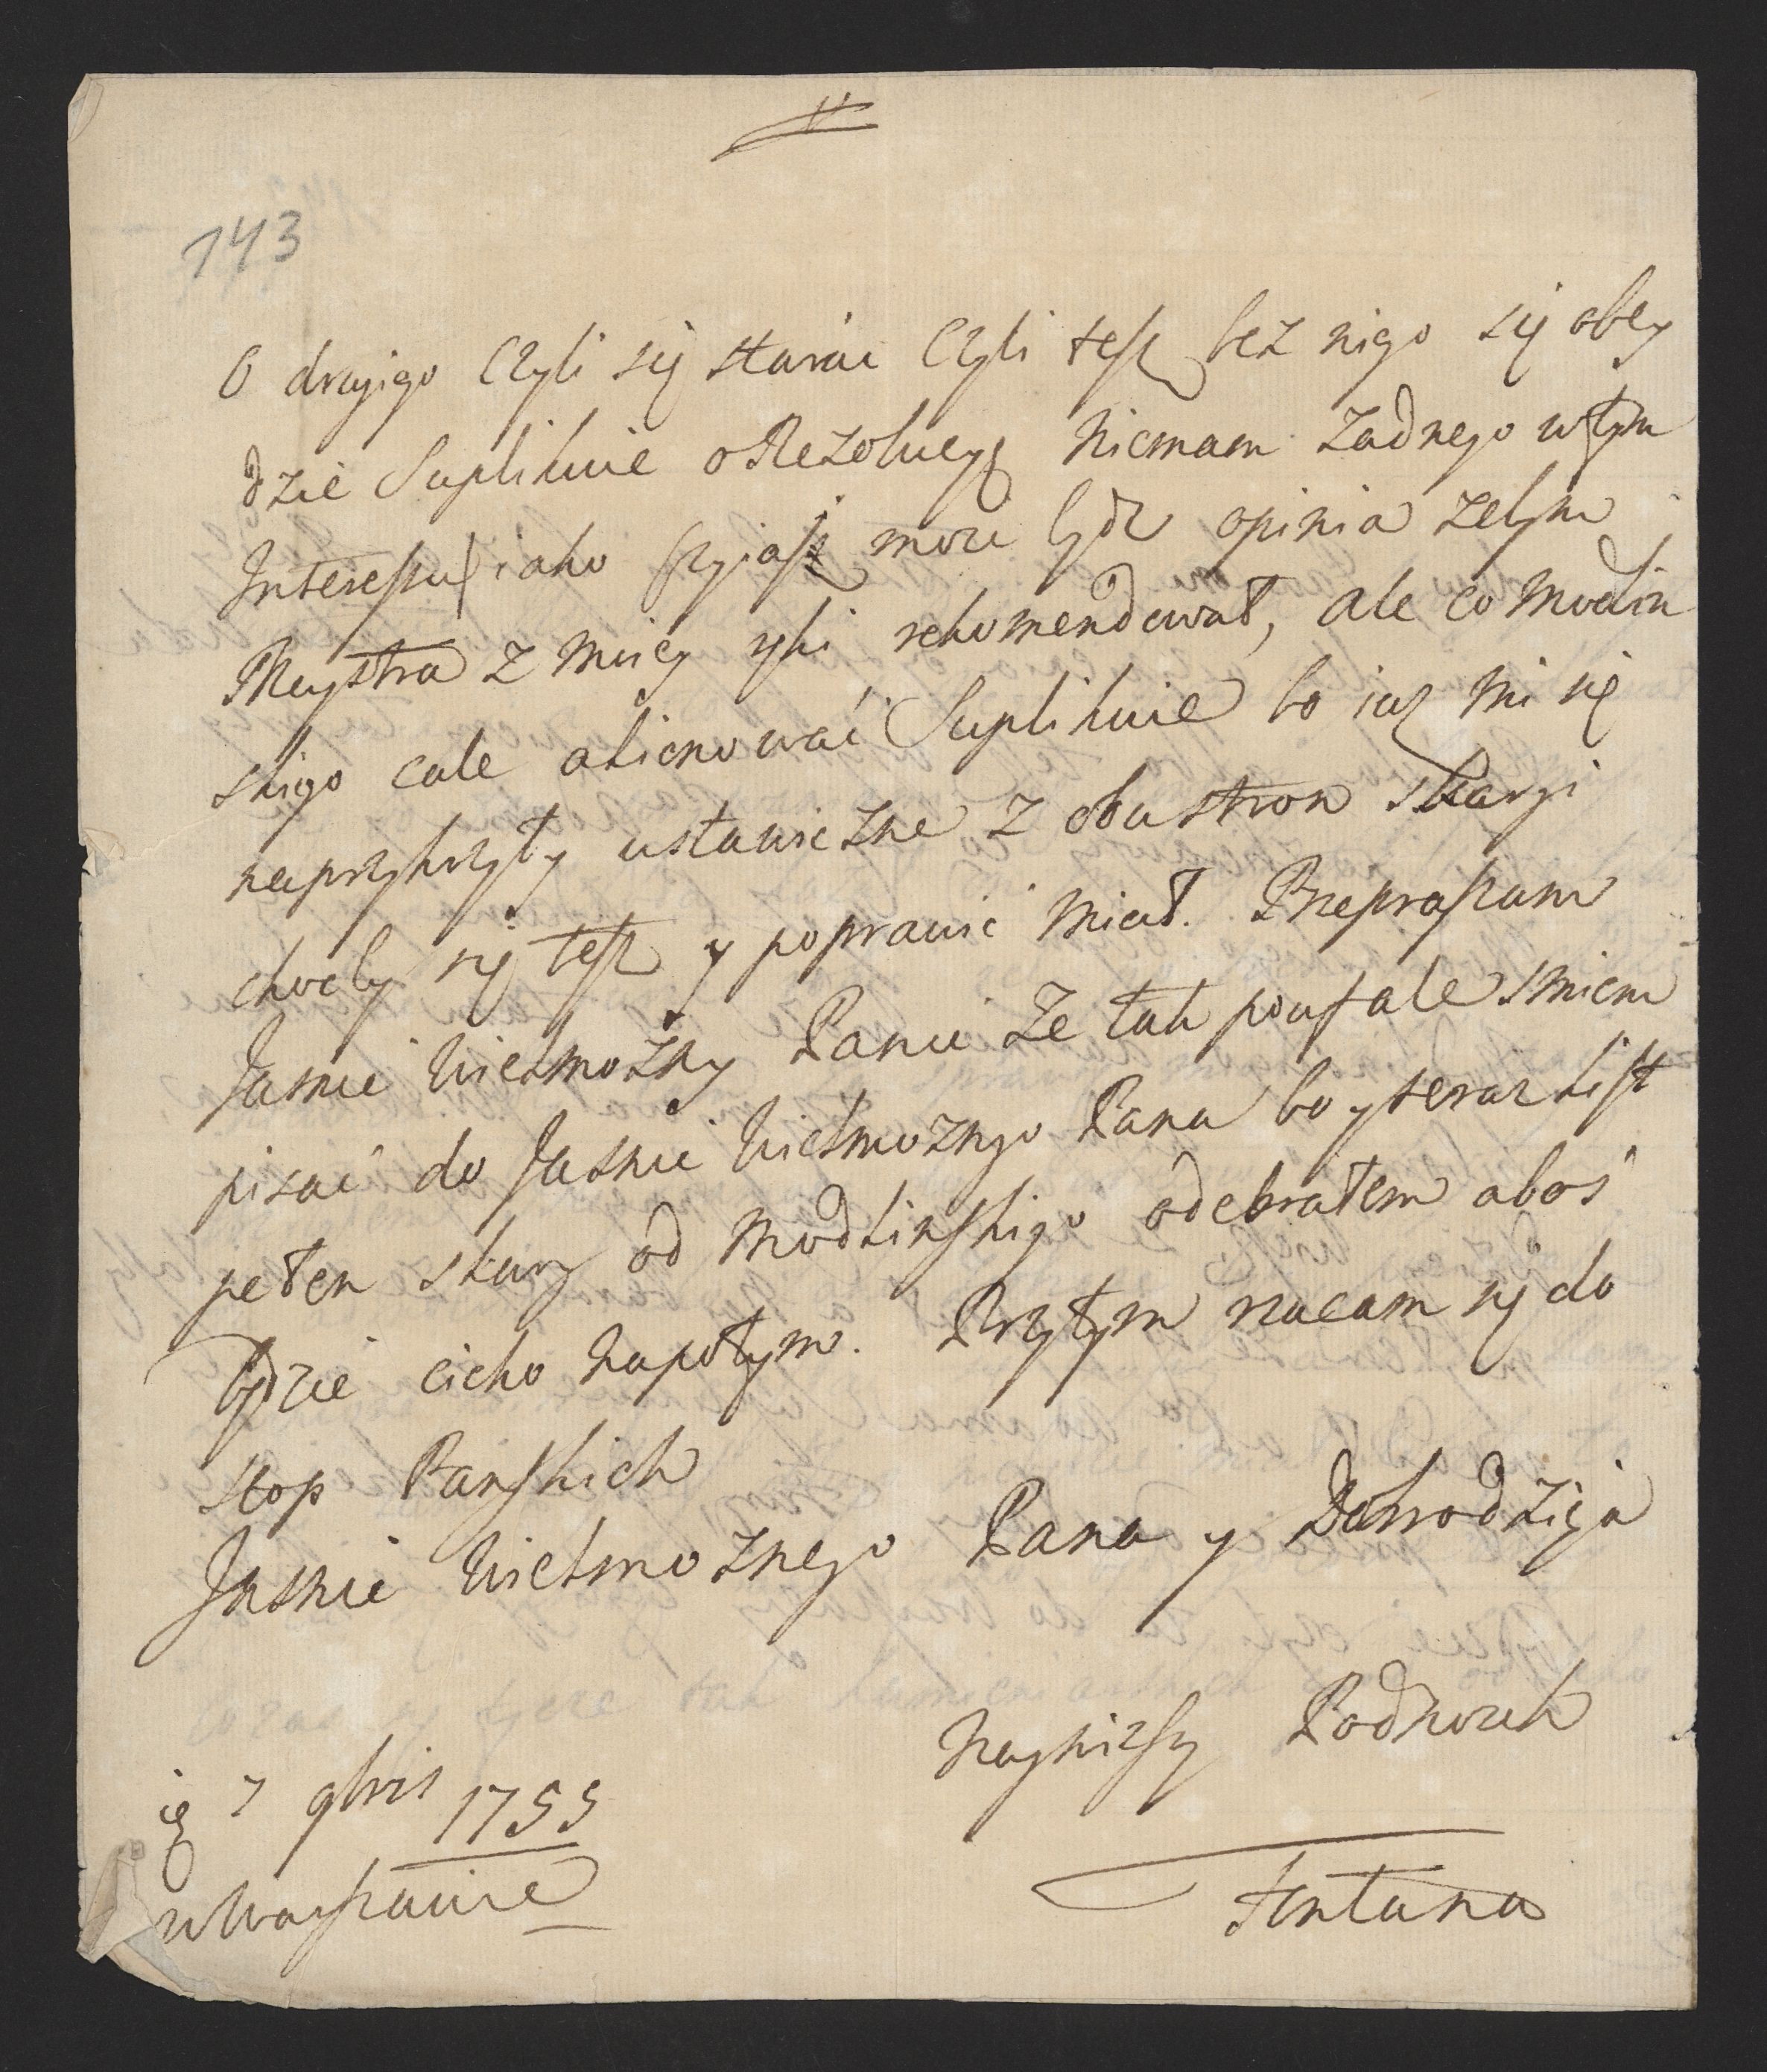 143
O drugigo Czyli się starac Czyli tesz bez nigo się obey
dzie Suplikuie o Rezolucyę Niemam zadnego w tym
Interessu iako czyjasz moze bydz opinia zebym
Maystra z Moiey ręki rekomendował, ale co Modlin
skigo cale alienować Suplikuie bo iusz Mi się
naprzykrzyły ustawiczne z obustron skargi
choćby się tesz y poprawić Miał. Przepraszam
Jasnie Wielmozny Panie Ze tak poufale smiem
pisać do Jasnie Wielmoznego Pana bo y teraz list
pełen skarg od Modlinskigo odebrałem aboś
bydzie cicho Napotym. Przytym rzucam się do
stop Pańskich
Jasnie Wielmoznego Pana y Dobrodzieja
Nayniższy Podnozek
7 9bris 1755
w Warszawie
Fontana